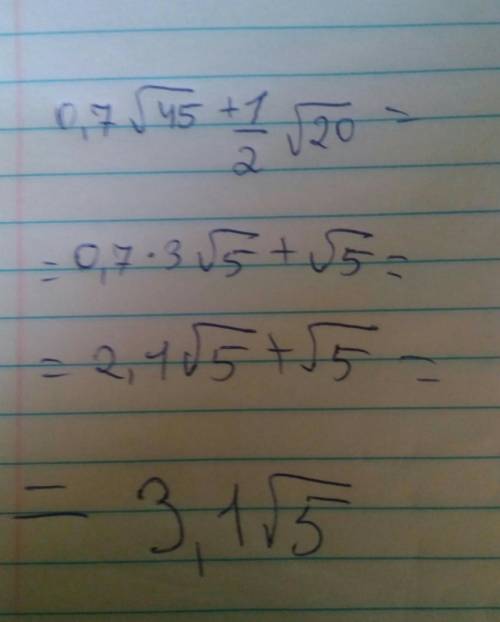 0,7√45 + 1/2 √20 =
= 0,7·3√5 + √5 =
= 2,1√5 + √5 =
= 3,1√5